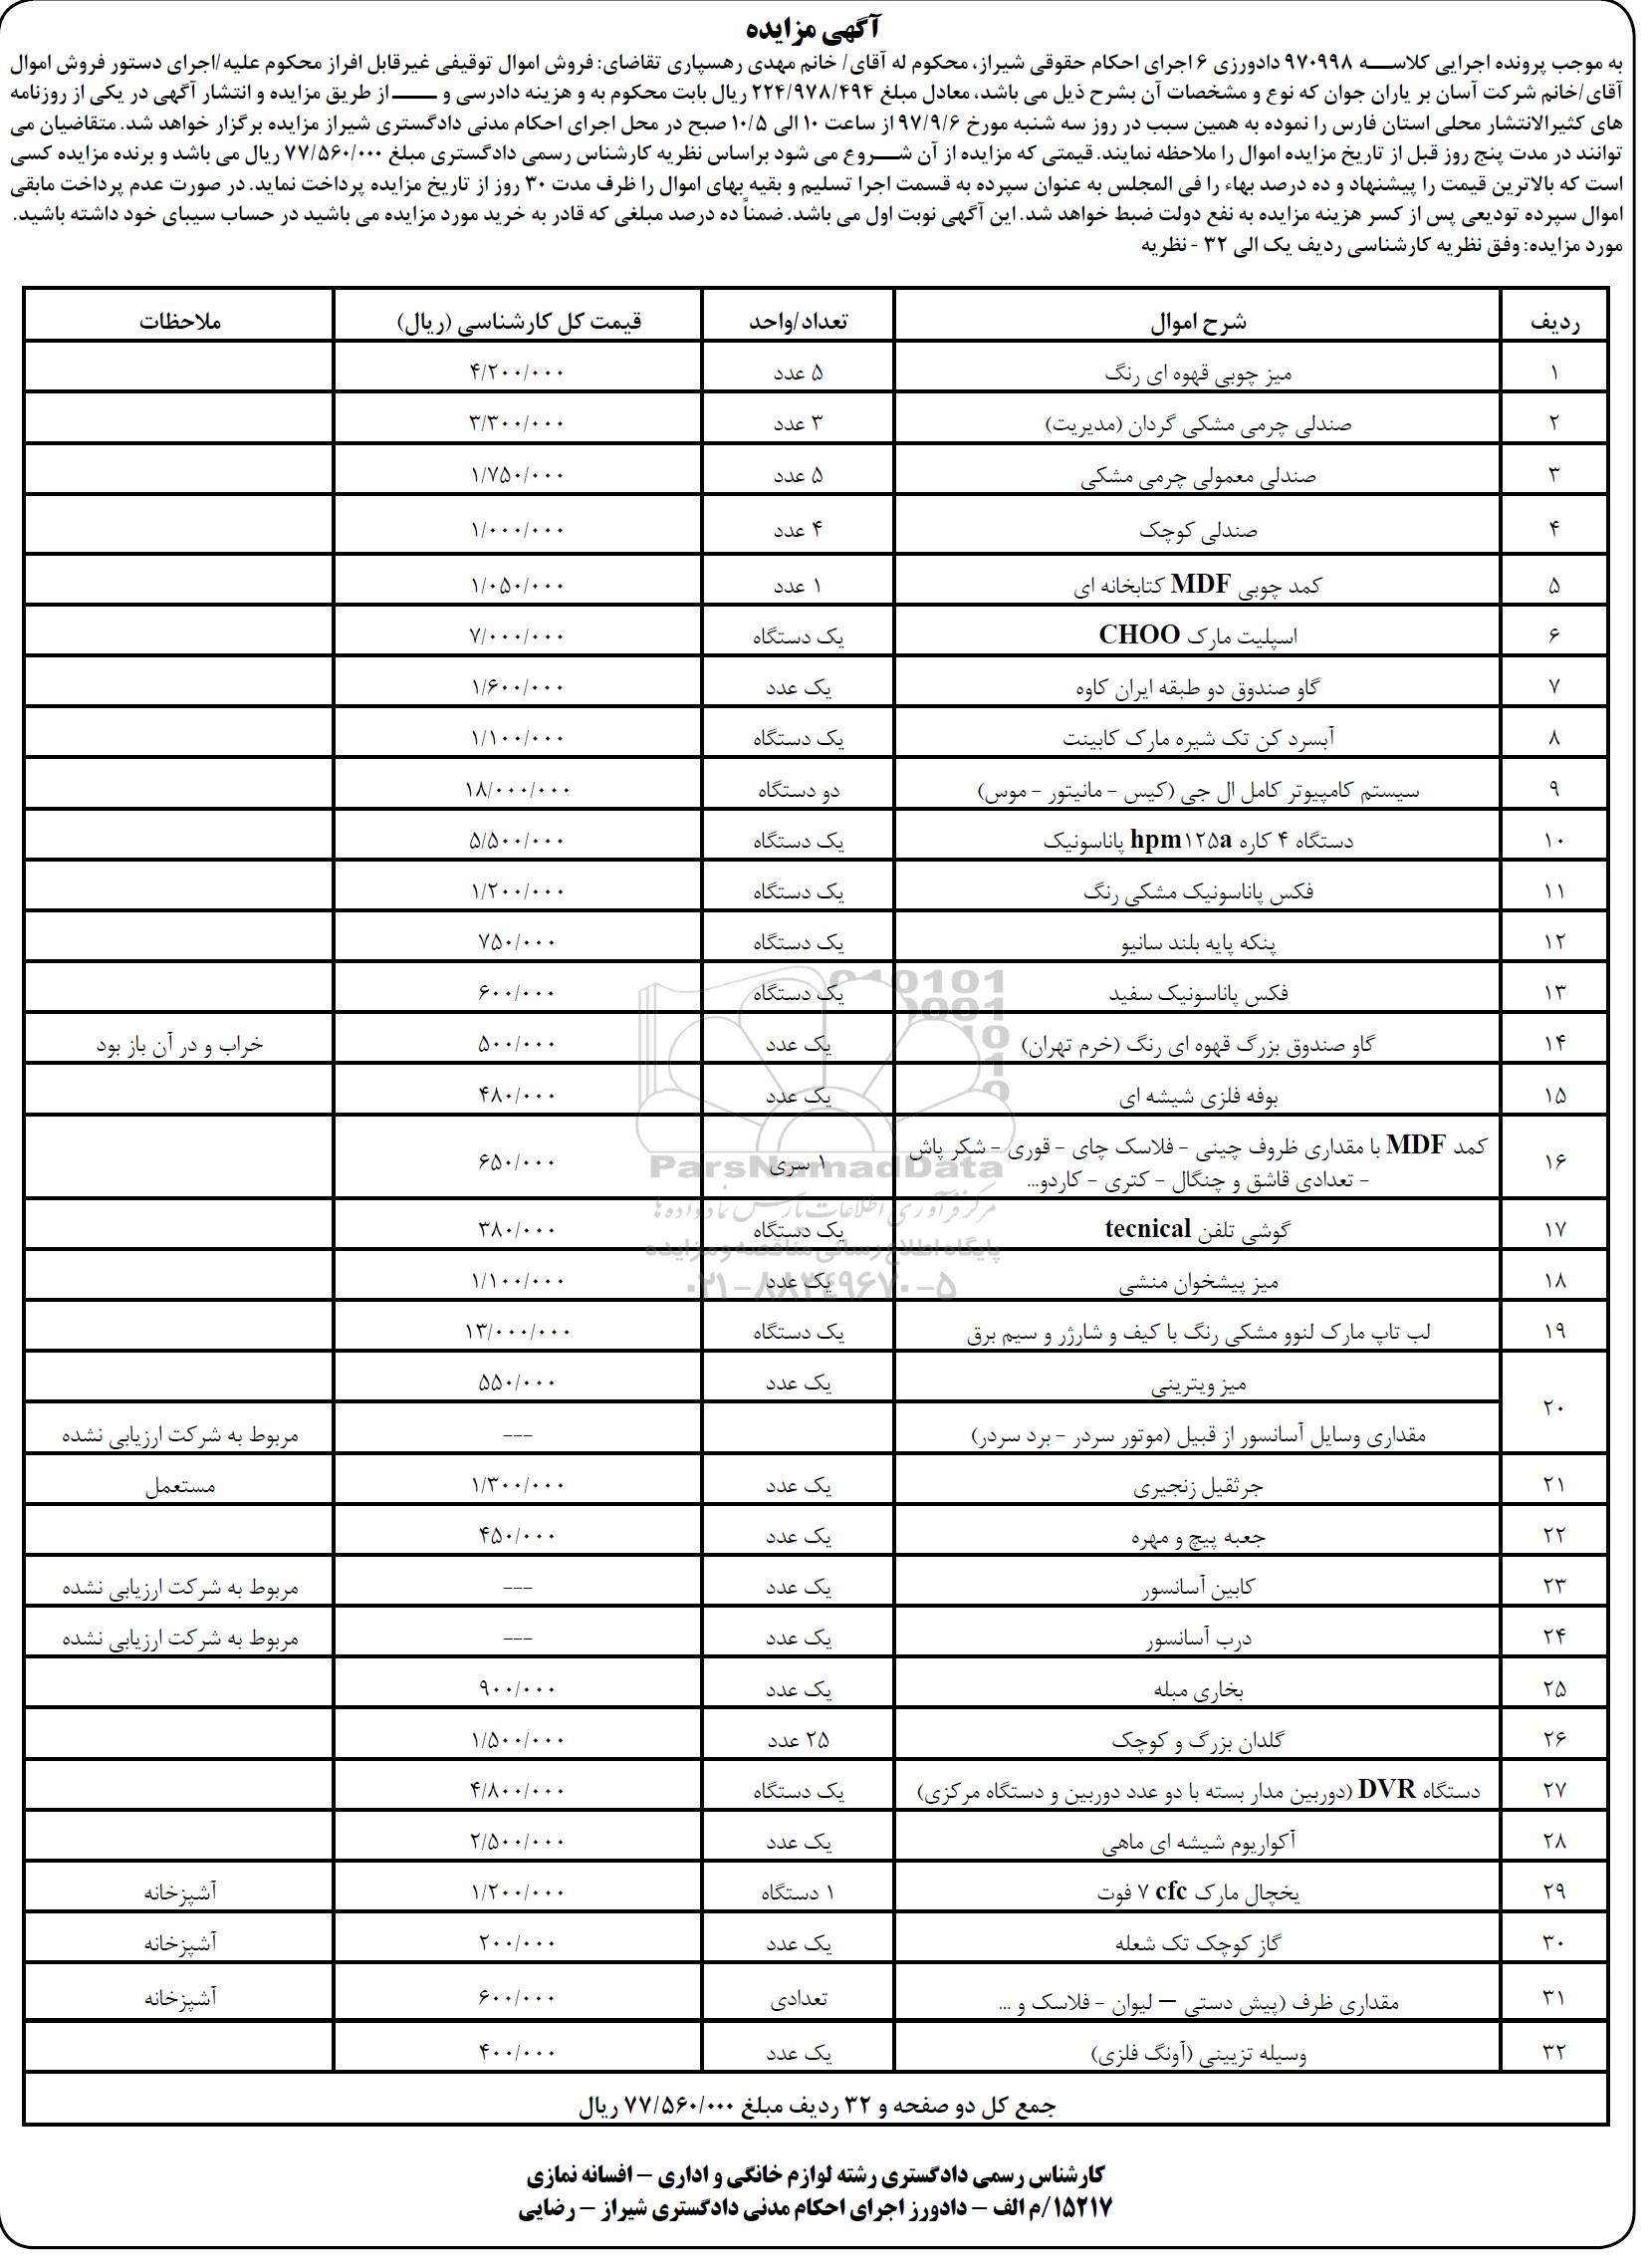 آگهی مزایده
به موجب پرونده اجرایی کلاسه ۹۷۰۹۹۸ دادورزی ۶ اجرای احکام حقوقی شیراز، محکوم له آقای/ خانم مهدی رهسپاری تقاضای: فروش اموال توقیفی غیرقابل افراز محکوم علیه/اجرای دستور فروش اموال
آقای/خانم شرکت آسان بر یاران جوان که نوع و مشخصات آن بشرح ذیل می باشد، معادل مبلغ ۲۲۴/۹۷۸/۴۹۴ ریال بابت محکوم به و هزینه دادرسی و ـــــ از طریق مزایده و انتشار آگهی در یکی از روزنامه
های کثیرالانتشار محلی استان فارس را نموده به همین سبب در روز سه شنبه مورخ ۹۷/۹/۶ از ساعت ۱۰ الی ۱۰/۵ صبح در محل اجرای احکام مدنی دادگستری شیراز مزایده برگزار خواهد شد. متقاضیان می
توانند در مدت پنج روز قبل از تاریخ مزایده اموال را ملاحظه نمایند. قیمتی که مزایده از آن شروع می شود براساس نظریه کارشناس رسمی دادگستری مبلغ ۷۷/۵۶۰/۰۰۰ ریال می باشد و برنده مزایده کسی
است که بالاترین قیمت را پیشنهاد و ده درصد بهاء را فی المجلس به عنوان سپرده به قسمت اجرا تسلیم و بقیه بهای اموال را ظرف مدت ۳۰ روز از تاریخ مزایده پرداخت نماید. در صورت عدم پرداخت مابقی
اموال سپرده تودیعی پس از کسر هزینه مزایده به نفع دولت ضبط خواهد شد. این آگهی نوبت اول می باشد. ضمناً ده درصد مبلغی که قادر به خرید مورد مزایده می باشید در حساب سیبای خود داشته باشید.
مورد مزایده: وفق نظریه کارشناسی ردیف یک الی ۳۲ - نظریه
ردیف شرح اموال تعداد/واحد قیمت کل کارشناسی (ریال) ملاحظات
۱ میز چوبی قهوه ای رنگ ۵ عدد ۴/۲۰۰/۰۰۰
۲ صندلی چرمی مشکی گردان (مدیریت) ۳ عدد ۳/۳۰۰/۰۰۰
۳ صندلی معمولی چرمی مشکی ۵ عدد ۱/۷۵۰/۰۰۰
۴ صندلی کوچک ۴ عدد ۱/۰۰۰/۰۰۰
۵ کمد چوبی MDF کتابخانه ای ۱ عدد ۱/۰۵۰/۰۰۰
۶ اسپلیت مارک CHOO یک دستگاه ۷/۰۰۰/۰۰۰
۷ گاو صندوق دو طبقه ایران کاوه یک عدد ۱/۶۰۰/۰۰۰
۸ آبسرد کن تک شیره مارک کابینت یک دستگاه ۱/۱۰۰/۰۰۰
۹ سیستم کامپیوتر کامل ال جی (کیس - مانیتور - موس) دو دستگاه ۱۸/۰۰۰/۰۰۰
۱۰ دستگاه ۴ کاره hpm۱۲۵a پاناسونیک یک دستگاه ۵/۵۰۰/۰۰۰
۱۱ فکس پاناسونیک مشکی رنگ یک دستگاه ۱/۲۰۰/۰۰۰
۱۲ پنکه پایه بلند سانیو یک دستگاه ۷۵۰/۰۰۰
۱۳ فکس پاناسونیک سفید یک دستگاه ۶۰۰/۰۰۰
۱۴ گاو صندوق بزرگ قهوه ای رنگ (خرم تهران) یک عدد ۵۰۰/۰۰۰ خراب و در آن باز بود
۱۵ بوفه فلزی شیشه ای یک عدد ۴۸۰/۰۰۰
۱۶ کمد MDF با مقداری ظروف چینی - فلاسک چای - قوری - شکر پاش
- تعدادی قاشق و چنگال - کتری - کاردو... ۱ سری ۶۵۰/۰۰۰
۱۷ گوشی تلفن tecnical یک دستگاه ۳۸۰/۰۰۰
۱۸ میز پیشخوان منشی یک عدد ۱/۱۰۰/۰۰۰
۱۹ لب تاپ مارک لنوو مشکی رنگ با کیف و شارژر و سیم برق یک دستگاه ۱۳/۰۰۰/۰۰۰
۲۰ میز ویترینی یک عدد ۵۵۰/۰۰۰
مقداری وسایل آسانسور از قبیل (موتور سردر - برد سردر) --- مربوط به شرکت ارزیابی نشده
۲۱ جرثقیل زنجیری یک عدد ۱/۳۰۰/۰۰۰ مستعمل
۲۲ جعبه پیچ و مهره یک عدد ۴۵۰/۰۰۰
۲۳ کابین آسانسور یک عدد --- مربوط به شرکت ارزیابی نشده
۲۴ درب آسانسور یک عدد --- مربوط به شرکت ارزیابی نشده
۲۵ بخاری مبله یک عدد ۹۰۰/۰۰۰
۲۶ گلدان بزرگ و کوچک ۲۵ عدد ۱/۵۰۰/۰۰۰
۲۷ دستگاه DVR (دوربین مدار بسته با دو عدد دوربین و دستگاه مرکزی) یک دستگاه ۴/۸۰۰/۰۰۰
۲۸ آکواریوم شیشه ای ماهی یک عدد ۲/۵۰۰/۰۰۰
۲۹ یخچال مارک cfc ۷ فوت ۱ دستگاه ۱/۲۰۰/۰۰۰ آشپزخانه
۳۰ گاز کوچک تک شعله یک عدد ۲۰۰/۰۰۰ آشپزخانه
۳۱ مقداری ظرف (پیش دستی – لیوان - فلاسک و ... تعدادی ۶۰۰/۰۰۰ آشپزخانه
۳۲ وسیله تزیینی (آونگ فلزی) یک عدد ۴۰۰/۰۰۰
جمع کل دو صفحه و ۳۲ ردیف مبلغ ۷۷/۵۶۰/۰۰۰ ریال
کارشناس رسمی دادگستری رشته لوازم خانگی و اداری – افسانه نمازی
۱۵۲۱۷/م الف – دادورز اجرای احکام مدنی دادگستری شیراز – رضایی
ParsNamadData
مرکز فرآوری اطلاعات پارس نماد داده ها
پایگاه اطلاع رسانی مناقصه و مزایده
۰۲۱-۸۸۳۴۹۶۷۰-۵